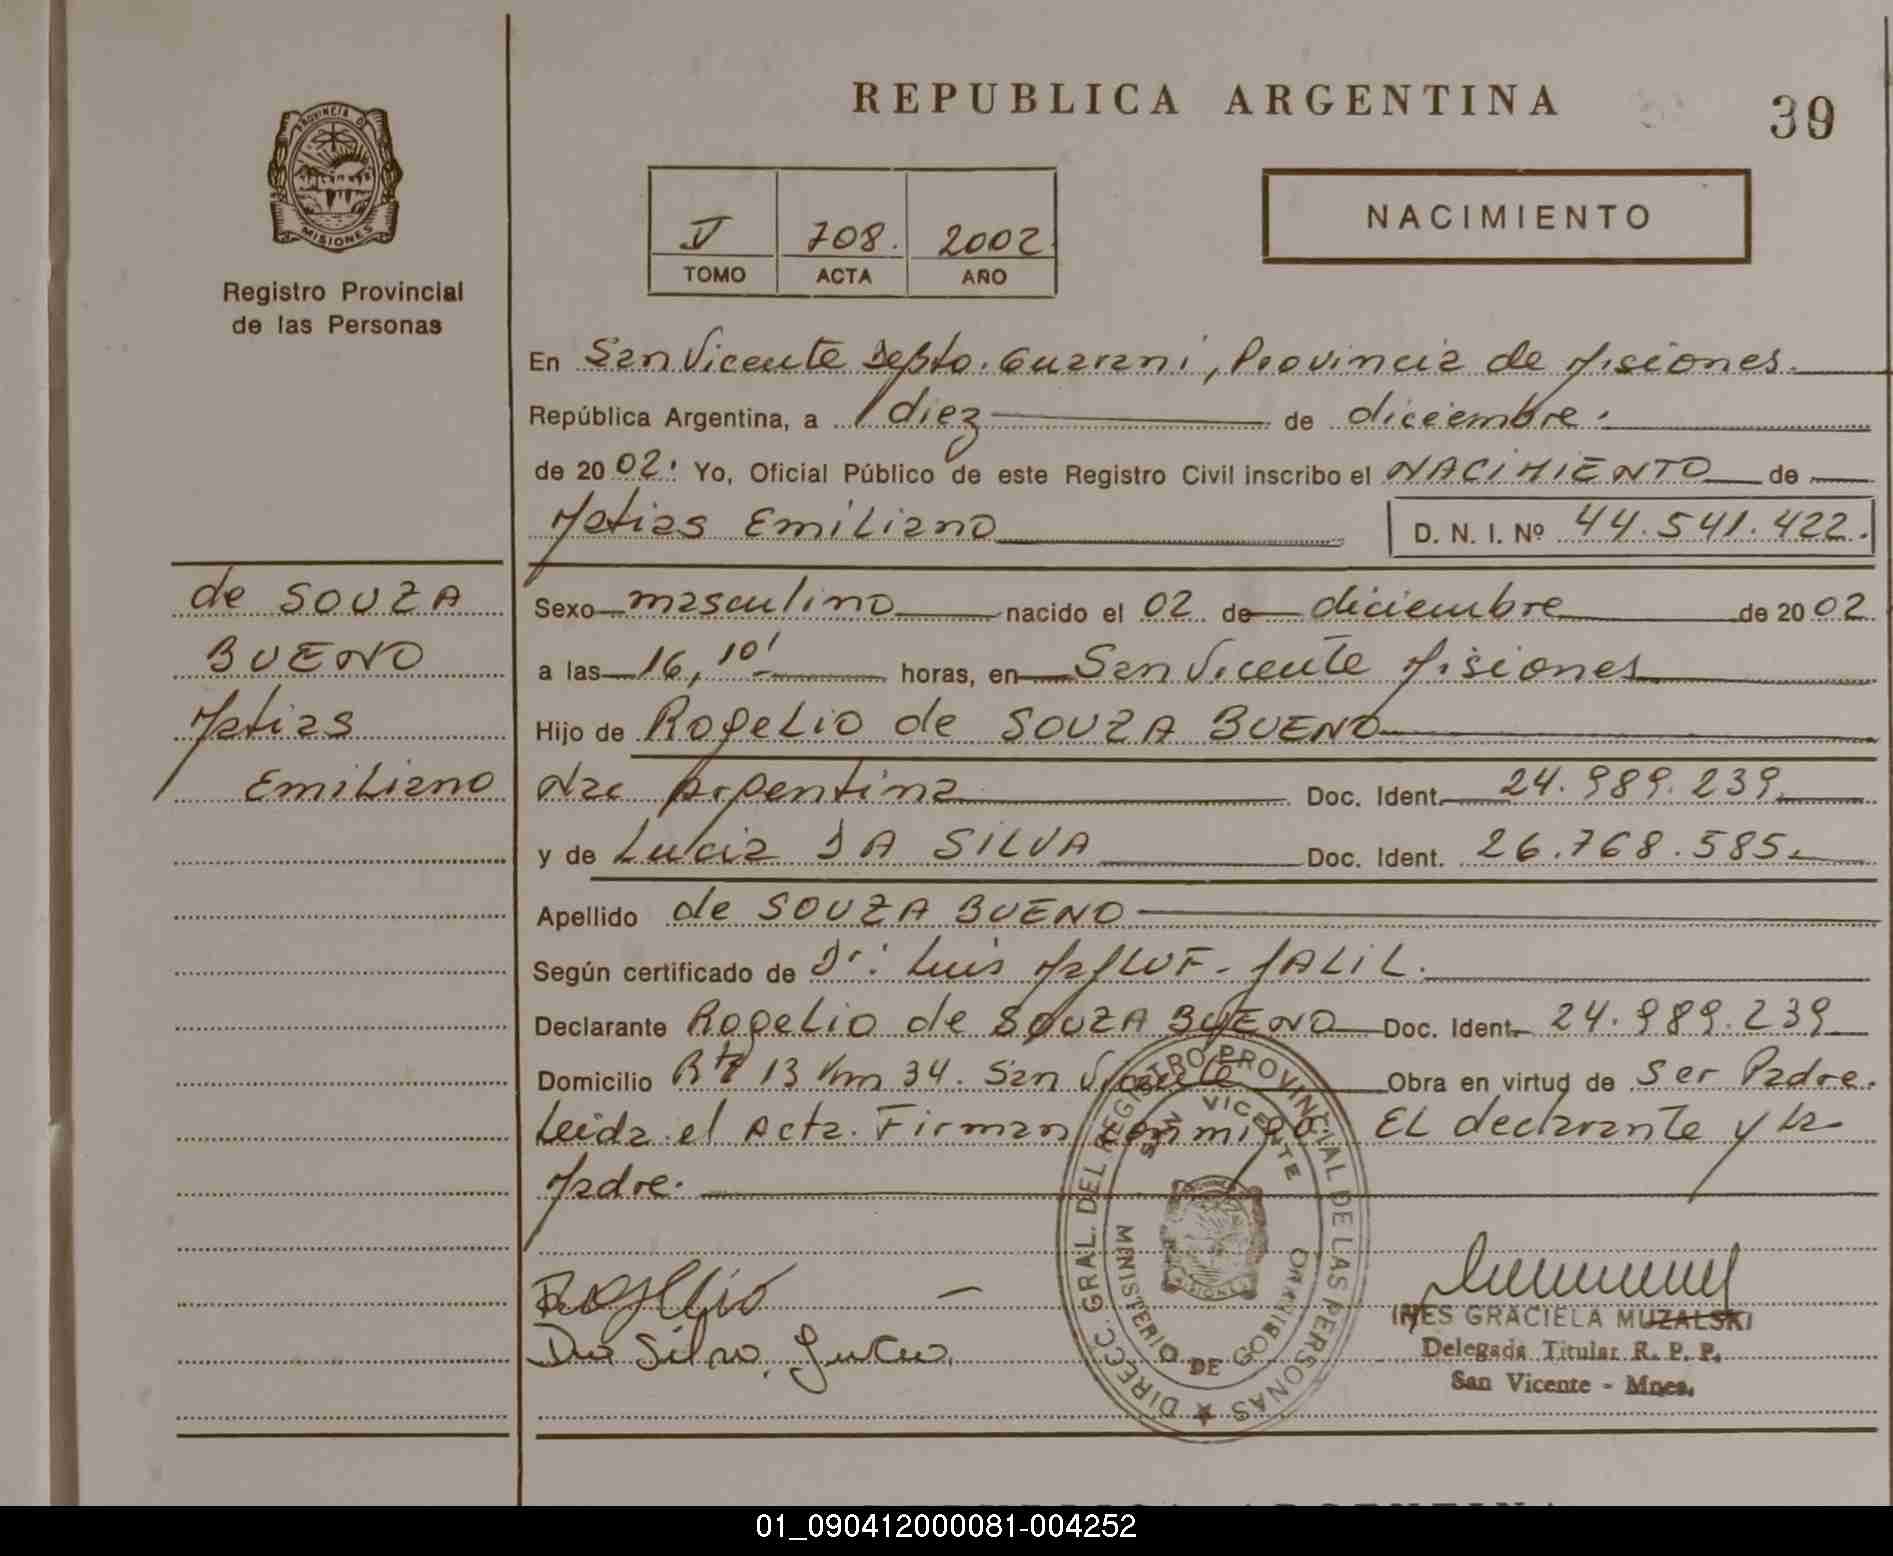 REPUBLICA ARGENTINA
39
PROVINCIA DE
MISIONES
Registro Provincial
de las Personas
V 708. 2002
TOMO ACTA AÑO
NACIMIENTO
En San Vicente Depto. Guarani, Provincia de Misiones.
República Argentina, a diez de diciembre.
de 2002. Yo, Oficial Público de este Registro Civil inscribo el NACIMIENTO de
Matias Emiliano D. N. I. Nº 44.541.422.
de SOUZA
BUENO
Matias
Emiliano
Sexo masculino nacido el 02 de diciembre de 2002
a las 16,10' horas, en San Vicente Misiones
Hijo de Rogelio de SOUZA BUENO
Nac Argentina Doc. Ident. 24.989.239.
y de Lucia DA SILVA Doc. Ident. 26.768.585.
Apellido de SOUZA BUENO
Según certificado de Dr. Luis MALUF-JALIL.
Declarante Rogelio de SOUZA BUENO Doc. Ident. 24.989.239
Domicilio Rta 13 Km 34. San Vicente Obra en virtud de ser Padre.
Leida el Acta. Firman conmigo EL declarante y la
Madre.
DIRECC. GRAL. DEL REGISTRO PROVINCIAL DE LAS PERSONAS
SAN VICENTE
MINISTERIO DE GOBIERNO
MISIONES
Rogelio
Da Silva, Lucia
INES GRACIELA MUZALSKI
Delegada Titular R. P. P.
San Vicente - Mnes.
REPUBLICA ARGENTINA
01_090412000081-004252